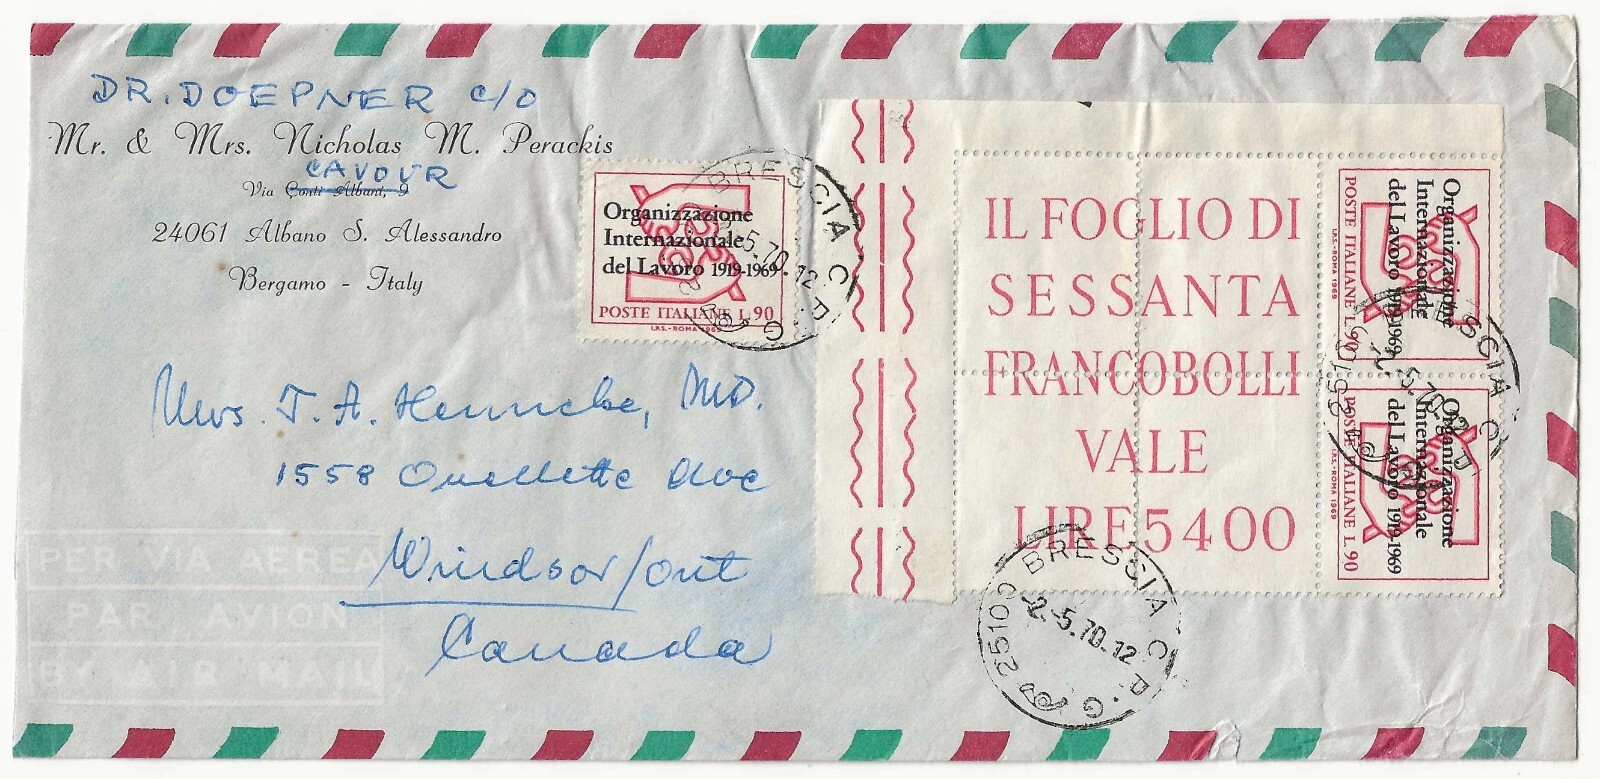 DR. DOEPNER c/o
Mr. & Mrs. Nicholas M. Perackis
CAVOUR
Via Conti Albani, 9
24061 Albano S. Alessandro
Bergamo - Italy
Organizzazione
Internazionale
del Lavoro 1919-1969
POSTE ITALIANE L. 90
I.P.S.-ROMA 1969
BRESCIA C.P.
-5.70.12
IL FOGLIO DI
SESSANTA
FRANCOBOLLI
VALE
LIRE 5400
Organizzazione
Internazionale
del Lavoro 1919-1969
POSTE ITALIANE L. 90
I.P.S.-ROMA 1969
Organizzazione
Internazionale
del Lavoro 1919-1969
POSTE ITALIANE L. 90
I.P.S.-ROMA 1969
BRESCIA C.P.
-5.70.12
Mrs. T. A. Henneke, MD.
1558 Ouellette Ave
Windsor/ont
Canada
PER VIA AEREA
PAR AVION
BY AIR MAIL
BRESCIA C.P.G
25100
-2.-5.70.12